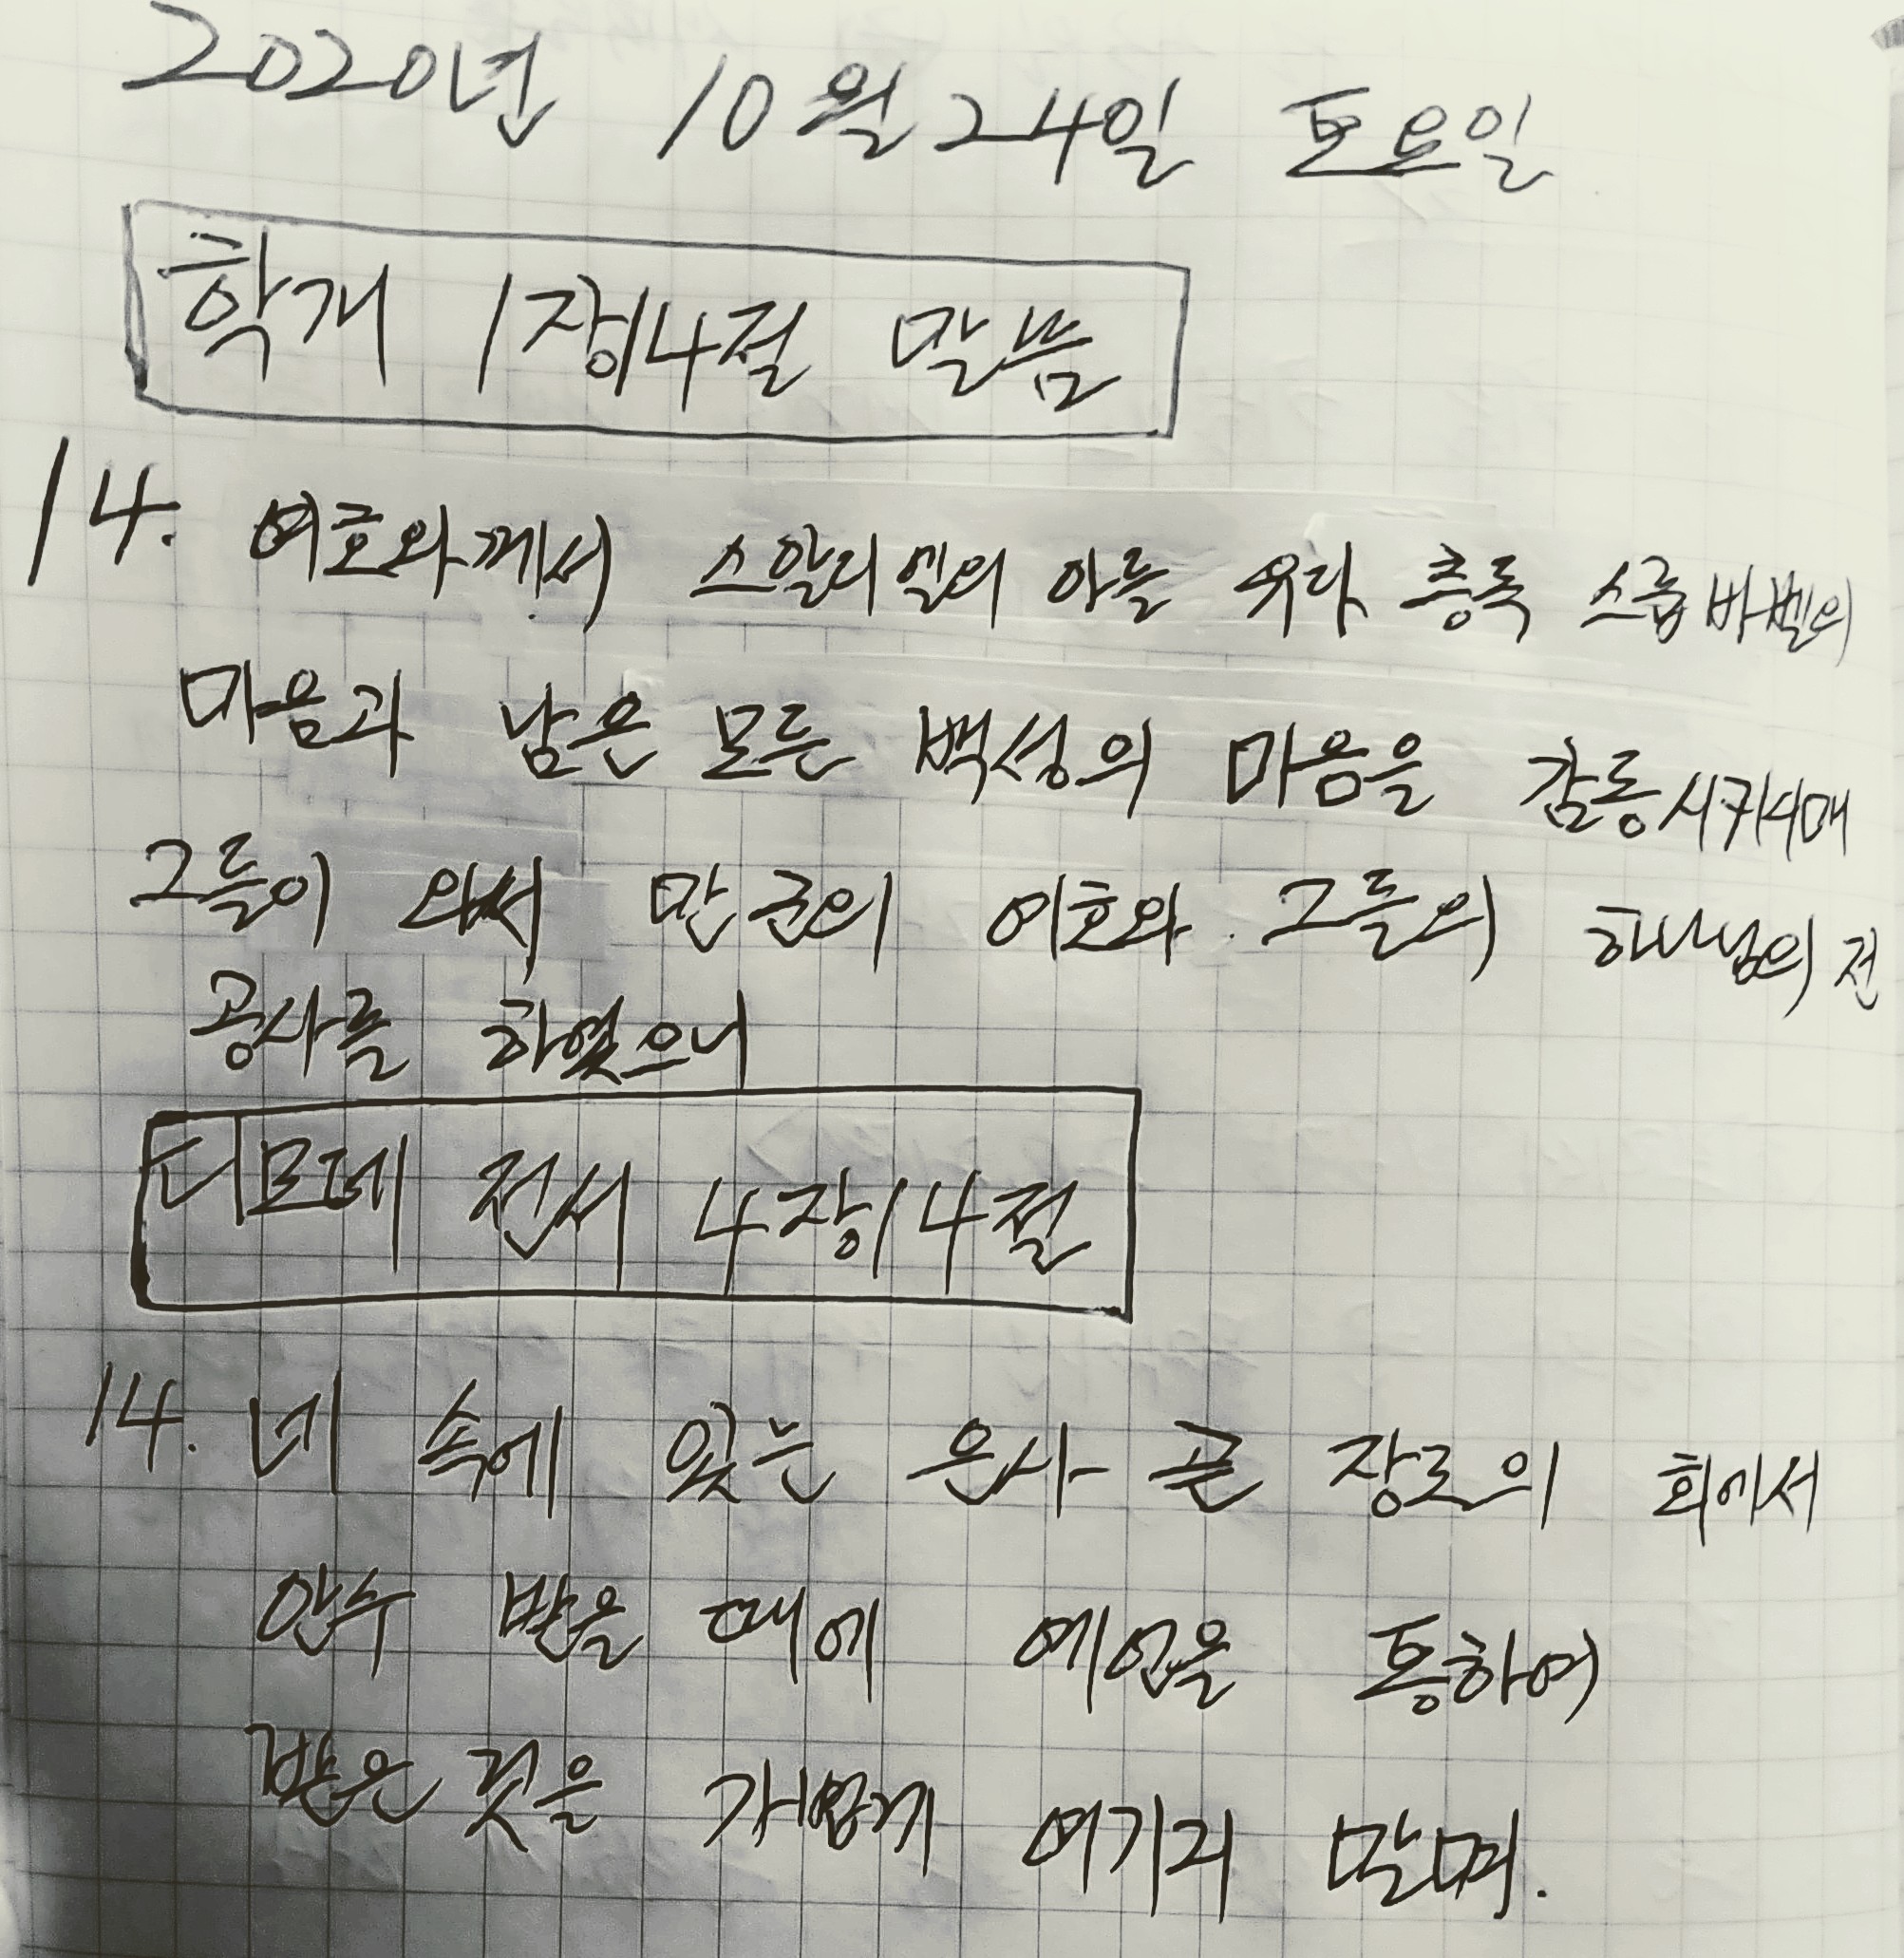 2020년 10월 24일 토요일
학개 1장14절 말씀
14. 여호와께서 스알디엘의 아들 유다 총독 스룹바벨의
마음과 남은 모든 백성의 마음을 감동시키시매
그들이 와서 만군의 여호와 그들의 하나님의 전
공사를 하였으니
디모데 전서 4장14절
14. 네 속에 있는 은사 곧 장로의 회에서
안수 받을 때에 예언을 통하여
받은 것을 가볍게 여기지 말며.